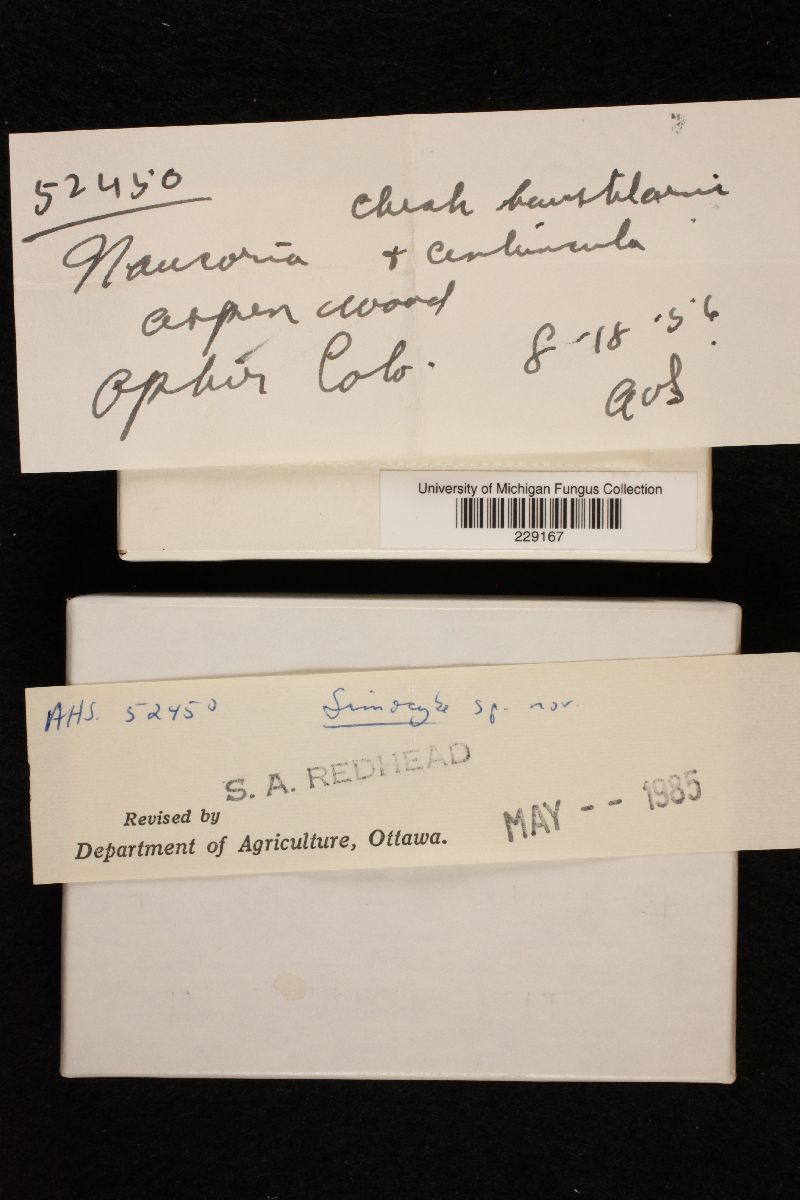 52450
check haustelaris
Naucoria + centuncula
aspen wood
Ophir Colo.
8-18-56.
University of Michigan Fungus Collection
229167
AHS. 52450 Simocybe sp. nov.
S. A. REDHEAD
Revised by
MAY -- 1985
Department of Agriculture, Ottawa.